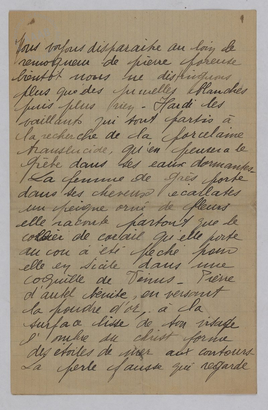 Nous voyons disparaître au loin le
remorqueur de pierre poreuse
bientôt nous ne distinguons
plus que des prunelles blanches
puis plus rien - Hardi les
vaillants qui sont partis à
la recherche de la porcelaine
translucide, qu'on pense à
dans les eaux dormantes
La femme de grès porte
dans ses cheveux écarlates
un peigne orné de fleurs
elle raconte partout que le
collier de corail qu'elle porte
au cou a été pêché pour
elle en Sicile dans une
coquille de Vénus - Pierre
d'autel bénite, en versant
la poudre d'or, à la
surface lisse de ton visage
l'ombre du christ forme
des étoiles de mer aux contours
La perle fausse qui regarde